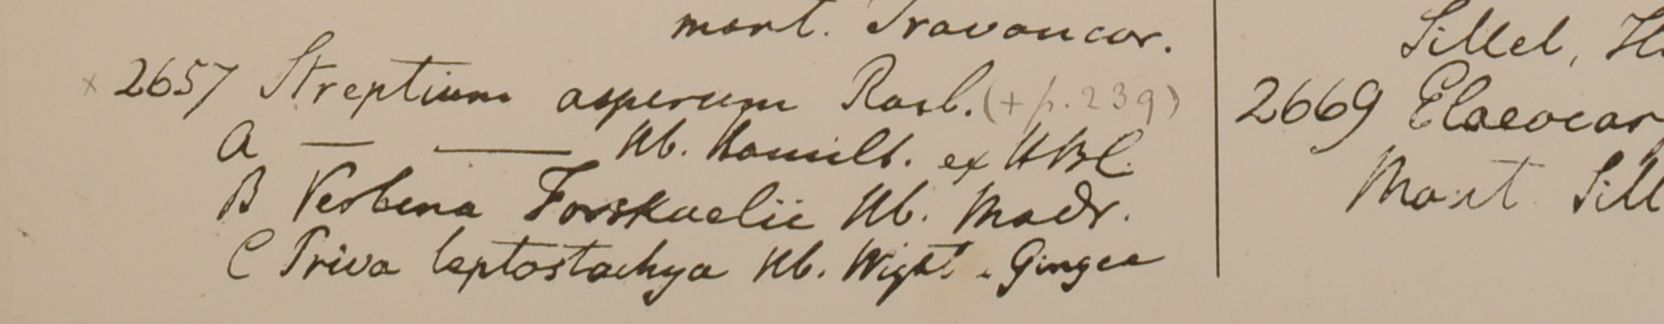 mont. Travancor.
× 2657 Streptium asperum Roxb. (+ p. 239)
A — — Hb. Hamilt. ex HBC.
B Verbena Forskaelii Hb. Madr.
C Priva leptostachya Hb. Wight. Gingee
Sillet, H
2669 Elaeocar
Mont Sill